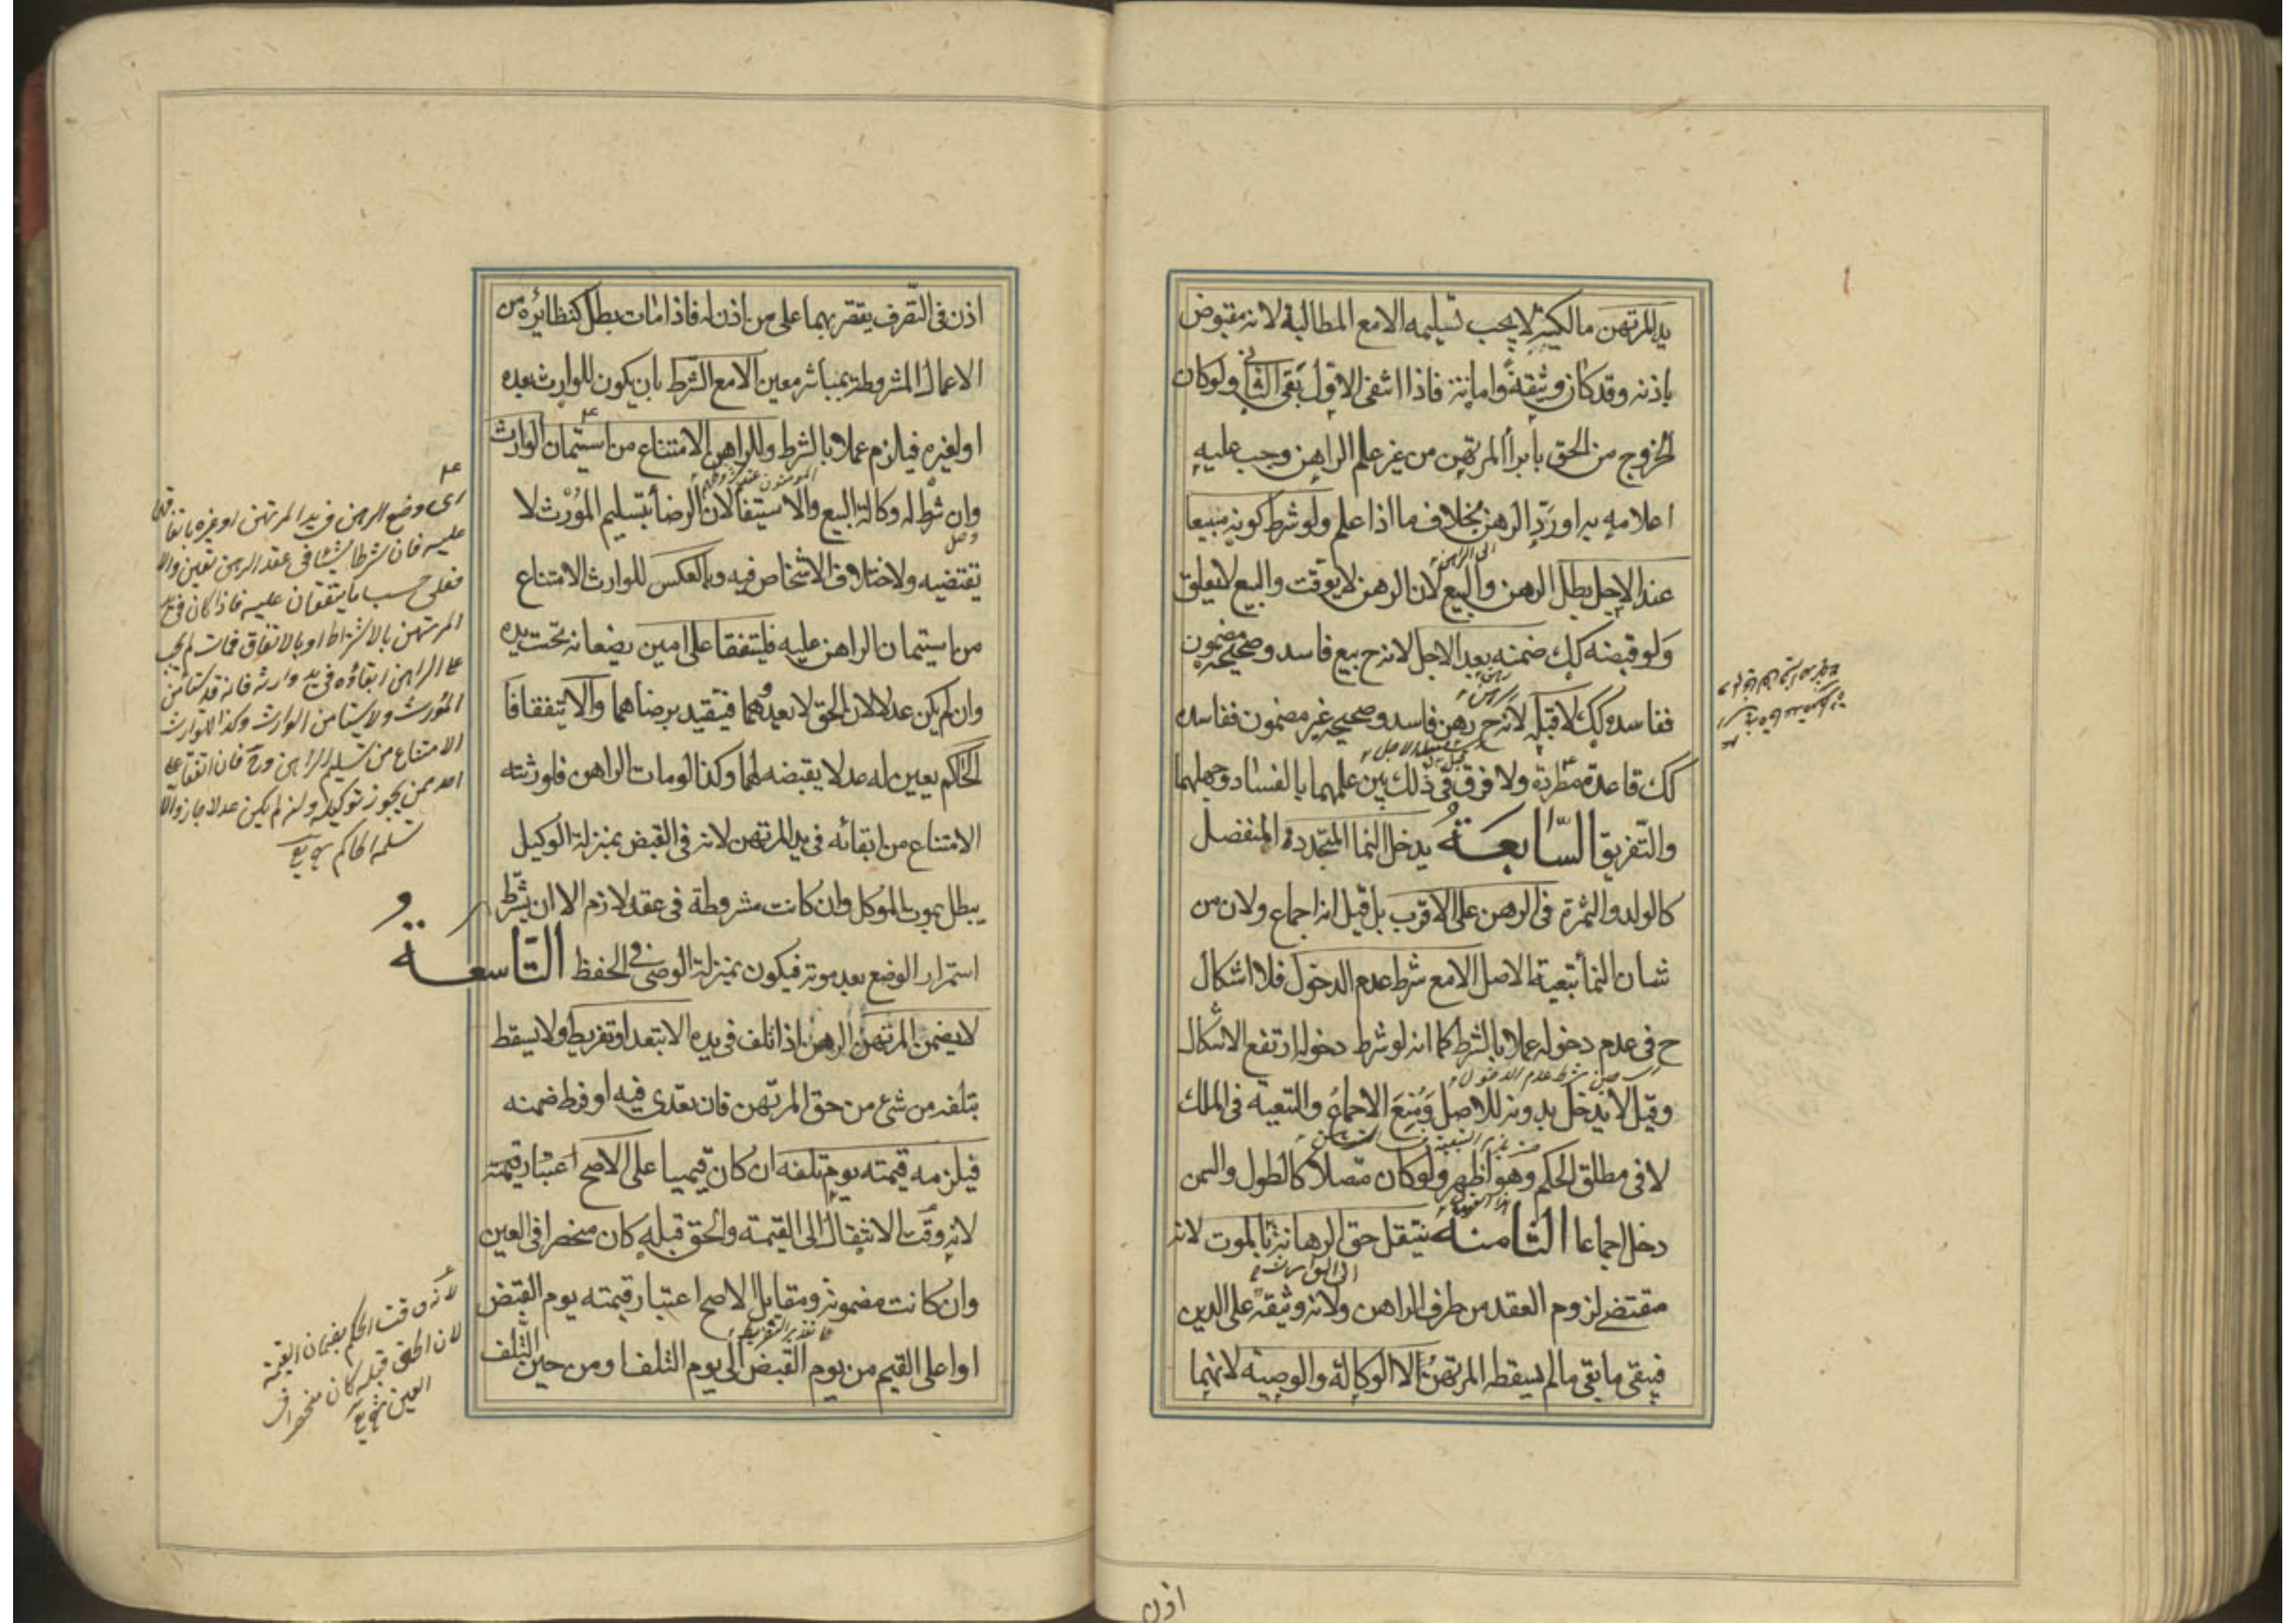 يد المرتهن مالكيته لا يجب تسليمه الا مع المطالبة لانه مقبوض
باذنه وقد كان وثيقة وامانة فاذا انتفى الاول بقى الثانى ولو كان
الخروج من الحق بابرأ المرتهن من غير علم الراهن وجب عليه
اعلامه به او رد الرهن بخلاف ما اذا علم ولو شرط كونه مبيعا
الى الراهن
عند الاجل بطل الرهن والبيع لان الرهن لا يوقت والبيع لا يعلق
ولو قبضه كك ضمنه بعد الاجل لانه ح بيع فاسد وصحيحه مضمون
ففاسده كك لا قبله لانه ح رهن فاسد وصحيحه غير مضمون ففاسده
كك قاعدة مطردة ولا فرق فى ذلك بين علمهما بالفساد وجهلهما
والتفريق السّابعَةُ يدخل النما المتجدد المنفصل
كالولد والثمرة فى الرهن على الاقرب بل قيل انه اجماع ولان من
شان النمأ تبعية الاصل الا مع شرط عدم الدخول فلا اشكال
ح فى عدم دخوله عملا بالشرط كما انه لو شرط دخوله ارتفع الاشكال
حين شرط عدم الدخول
وقيل لا يدخل بدونه للاصل وَمُنِعَ الاجماعُ والتبعية فى الملك
لا فى مطلق الحكم وهو اظهر ولو كان متصلا كالطول والسمن
دخل اجماعا الثامنة ينتقل حق الرهانة بالموت لانه
الى الوارث
مقتضى لزوم العقد من طرف الراهن ولانه وثيقة على الدين
فيبقى ما بقى ما لم يسقطه المرتهن الا الوكالة والوصية لانهما
اذن
اذن فى التصرف يقتصر بهما على من اذن له فاذا مات بطل كنظائره من
الاعمال المشروطة بمباشر معين الا مع الشرط بان يكون للوارث بعده
او لغيره فيلزم عملا بالشرط وللراهن الامتناع من استيمان الوارث
المؤمنون عند شروطهم
وان شرط له وكالة البيع والاستيفا لان الرضا بتسليم المورث لا
يقتضيه ولاختلاف الاشخاص فيه وبالعكس للوارث الامتناع
من استيمان الراهن عليه فليتفقا على امين يضعانه تحت يده
وان لم يكن عدلا لان الحق لا يعدوهما فيتقيد برضاهما والا يتفقا فا
لحاكم يعين له عدلا يقبضه لهما وكذا لو مات الراهن فلورثته
الامتناع من ابقائه فى يد المرتهن لانه فى القبض بمنزلة الوكيل
يبطل بموت الموكل وان كانت مشروطة فى عقد لازم الا ان يشترط
استمرار الوضع بعد موته فيكون بمنزلة الوصى فى الحفظ التاسعةُ
لا يضمن المرتهن الرهن اذا تلف فى يده الا بتعد او تفريط ولا يسقط
بتلفه من شئ من حق المرتهن فان تعدى فيه او فرط ضمنه
فيلزمه قيمته يوم تلفه ان كان قيميا على الاصح اعتبار قيمته
لانه وقت الانتقال الى القيمة والحق قبله كان منحصرا فى العين
وان كانت مضمونة ومقابل الاصح اعتبار قيمته يوم القبض
او اعلى القيم من يوم القبض الى يوم التلف او من حين التلف
اى وضع الرهن فى يد المرتهن او غيره باتفاقهما
عليه فان شرطا شيئا فى عقد الرهن تعين والا
فعلى حسب ما يتفقان عليه فاذا كان فى يد
المرتهن بالاشتراط او بالاتفاق فمات لم يجب
على الراهن ابقاؤه فى يد وارثه فانه قد يستأمن
المورث ولا يستأمن الوارث وكذا للوارث
الامتناع من تسليم الراهن وح فان اتفقا على
احد ممن يجوز توكيله ولو لم يكن عدلا جاز والا
سلمه الحاكم
لانه وقت الحكم بضمان القيمة
لان الحق قبله كان منحصرا فى
العين